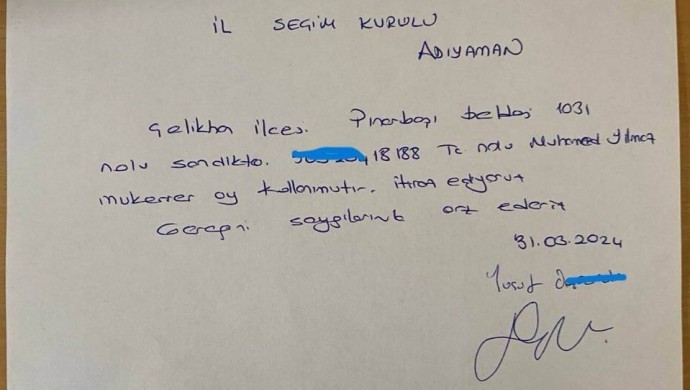 İL SEÇİM KURULU
ADIYAMAN
Çelikhan ilçesi. Pınarbaşı beldesi 1031
nolu sandıkta. 18188 Tc nolu Muhammed Yılmaz
mükerrer oy kullanmıştır. itiraz ediyorum
Gereğini saygılarımla arz ederim
31.03.2024
Yusuf